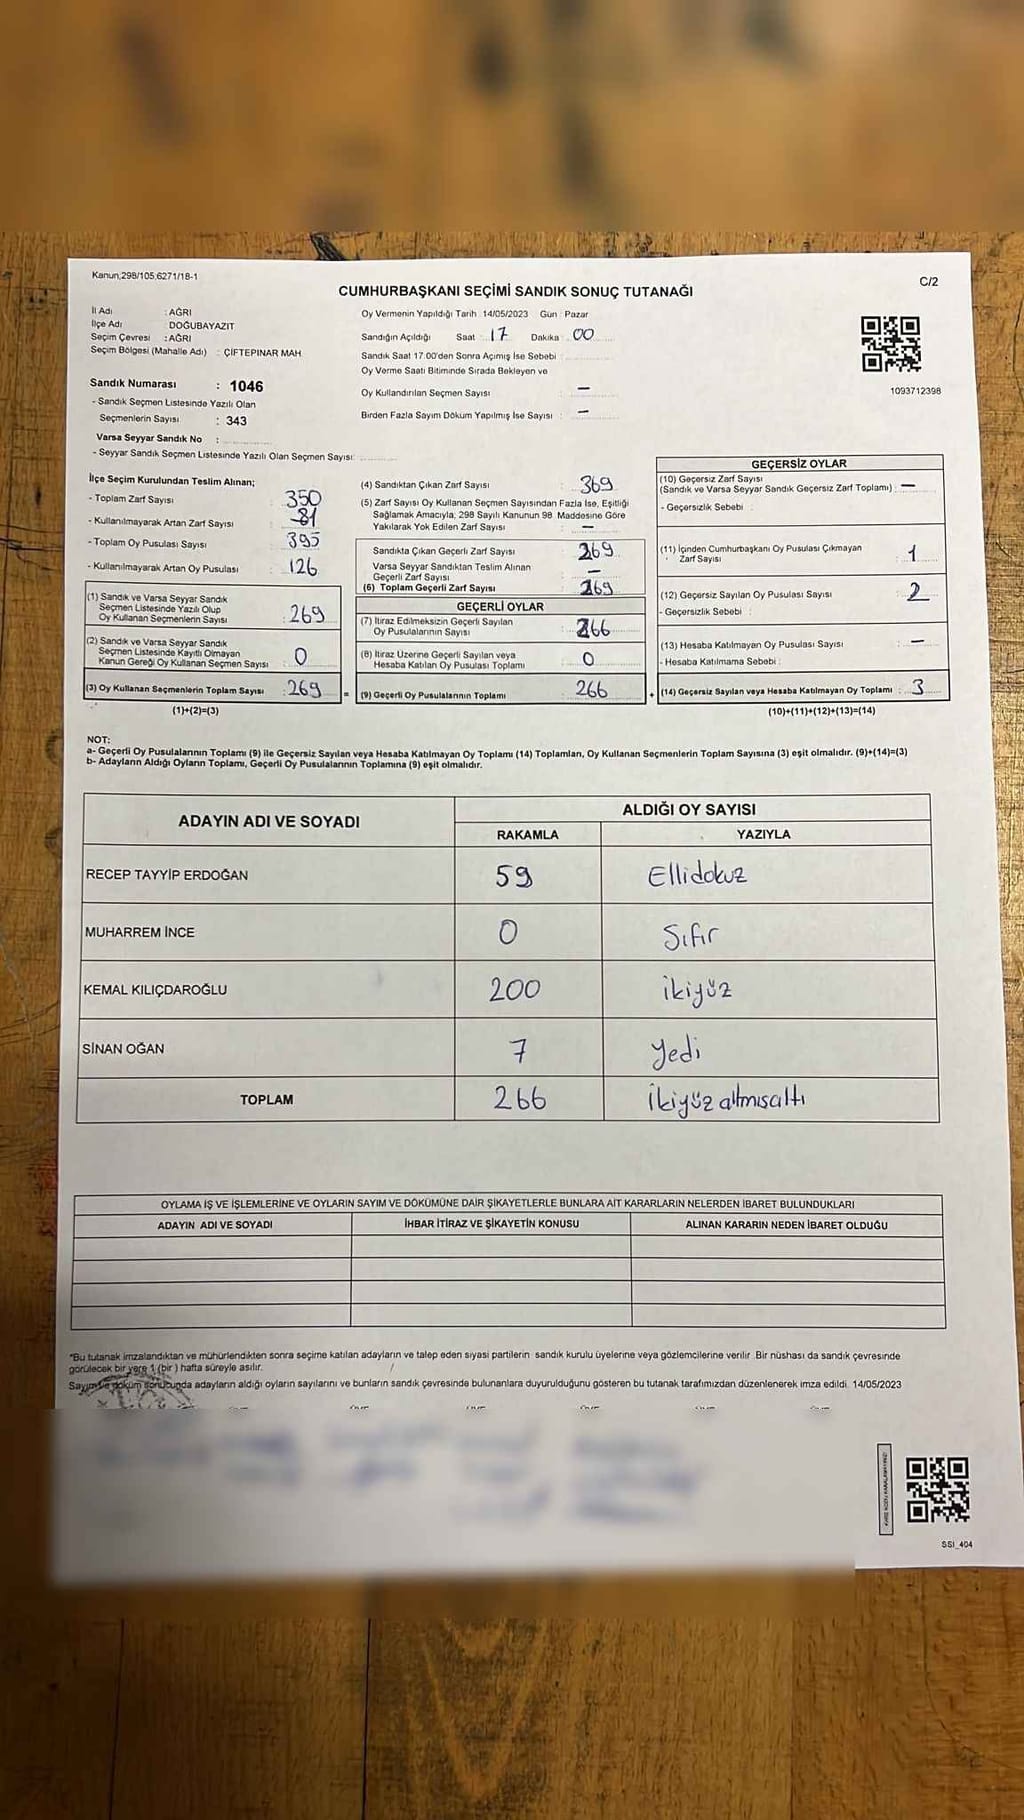 Kanun;298/105,6271/18-1
C/2
CUMHURBAŞKANI SEÇİMİ SANDIK SONUÇ TUTANAĞI
İl Adı : AĞRI
İlçe Adı : DOĞUBAYAZIT
Seçim Çevresi : AĞRI
Seçim Bölgesi (Mahalle Adı) : ÇİFTEPINAR MAH.
Sandık Numarası : 1046
- Sandık Seçmen Listesinde Yazılı Olan
Seçmenlerin Sayısı : 343
Varsa Seyyar Sandık No :
- Seyyar Sandık Seçmen Listesinde Yazılı Olan Seçmen Sayısı:
Oy Vermenin Yapıldığı Tarih : 14/05/2023 Gün : Pazar
Sandığın Açıldığı Saat : 17 Dakika : 00
Sandık Saat 17.00'den Sonra Açımış İse Sebebi :
Oy Verme Saati Bitiminde Sırada Bekleyen ve
Oy Kullandırılan Seçmen Sayısı : —
Birden Fazla Sayım Döküm Yapılmış İse Sayısı : —
1093712398
İlçe Seçim Kurulundan Teslim Alınan;
- Toplam Zarf Sayısı : 350
- Kullanılmayarak Artan Zarf Sayısı : 81
- Toplam Oy Pusulası Sayısı : 395
- Kullanılmayarak Artan Oy Pusulası : 126
(1) Sandık ve Varsa Seyyar Sandık
Seçmen Listesinde Yazılı Olup
Oy Kullanan Seçmenlerin Sayısı : 269
(2) Sandık ve Varsa Seyyar Sandık
Seçmen Listesinde Kayıtlı Olmayan
Kanun Gereği Oy Kullanan Seçmen Sayısı : 0
(3) Oy Kullanan Seçmenlerin Toplam Sayısı : 269
(1)+(2)=(3)
(4) Sandıktan Çıkan Zarf Sayısı : 369
(5) Zarf Sayısı Oy Kullanan Seçmen Sayısından Fazla İse, Eşitliği
Sağlamak Amacıyla, 298 Sayılı Kanunun 98. Maddesine Göre
Yakılarak Yok Edilen Zarf Sayısı : —
Sandıkta Çıkan Geçerli Zarf Sayısı : 269
Varsa Seyyar Sandıktan Teslim Alınan
Geçerli Zarf Sayısı : —
(6) Toplam Geçerli Zarf Sayısı : 269
GEÇERLİ OYLAR
(7) İtiraz Edilmeksizin Geçerli Sayılan
Oy Pusulalarının Sayısı : 266
(8) İtiraz Üzerine Geçerli Sayılan veya
Hesaba Katılan Oy Pusulası Toplamı : 0
= (9) Geçerli Oy Pusulalarının Toplamı : 266
GEÇERSİZ OYLAR
(10) Geçersiz Zarf Sayısı
(Sandık ve Varsa Seyyar Sandık Geçersiz Zarf Toplamı) : —
- Geçersizlik Sebebi :
(11) İçinden Cumhurbaşkanı Oy Pusulası Çıkmayan
Zarf Sayısı : 1
(12) Geçersiz Sayılan Oy Pusulası Sayısı : 2
- Geçersizlik Sebebi :
(13) Hesaba Katılmayan Oy Pusulası Sayısı : —
- Hesaba Katılmama Sebebi :
+ (14) Geçersiz Sayılan veya Hesaba Katılmayan Oy Toplamı : 3
(10)+(11)+(12)+(13)=(14)
NOT:
a- Geçerli Oy Pusulalarının Toplamı (9) ile Geçersiz Sayılan veya Hesaba Katılmayan Oy Toplamı (14) Toplamları, Oy Kullanan Seçmenlerin Toplam Sayısına (3) eşit olmalıdır. (9)+(14)=(3)
b- Adayların Aldığı Oyların Toplamı, Geçerli Oy Pusulalarının Toplamına (9) eşit olmalıdır.
ADAYIN ADI VE SOYADI
ALDIĞI OY SAYISI
RAKAMLA YAZIYLA
RECEP TAYYİP ERDOĞAN 59 Ellidokuz
MUHARREM İNCE 0 Sıfır
KEMAL KILIÇDAROĞLU 200 ikiyüz
SİNAN OĞAN 7 yedi
TOPLAM 266 İkiyüz altmışaltı
OYLAMA İŞ VE İŞLEMLERİNE VE OYLARIN SAYIM VE DÖKÜMÜNE DAİR ŞİKAYETLERLE BUNLARA AİT KARARLARIN NELERDEN İBARET BULUNDUKLARI
ADAYIN ADI VE SOYADI İHBAR İTİRAZ VE ŞİKAYETİN KONUSU ALINAN KARARIN NEDEN İBARET OLDUĞU
*Bu tutanak imzalandıktan ve mühürlendikten sonra seçime katılan adayların ve talep eden siyasi partilerin sandık kurulu üyelerine veya gözlemcilerine verilir. Bir nüshası da sandık çevresinde
görülecek bir yere 1 (bir) hafta süreyle asılır.
Sayım ve döküm sonucunda adayların aldığı oyların sayılarını ve bunların sandık çevresinde bulunanlara duyurulduğunu gösteren bu tutanak tarafımızdan düzenlenerek imza edildi. 14/05/2023
SSI_404